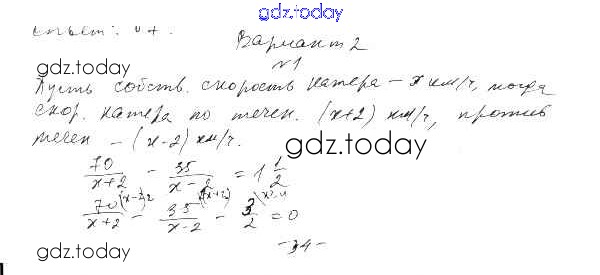 gdz.today
Ответ: 4 ч.
Вариант 2
gdz.today
№1
Пусть собств. скорость катера – x км/ч, тогда
скор. катера по течен. (x+2) км/ч, против
течен – (x-2) км/ч.
gdz.today
70/(x+2) - 35/(x-2) = 1 1/2
70/(x+2) (x-2)2 - 35/(x-2) (x+2) - 3/2 = 0
gdz.today
-34-